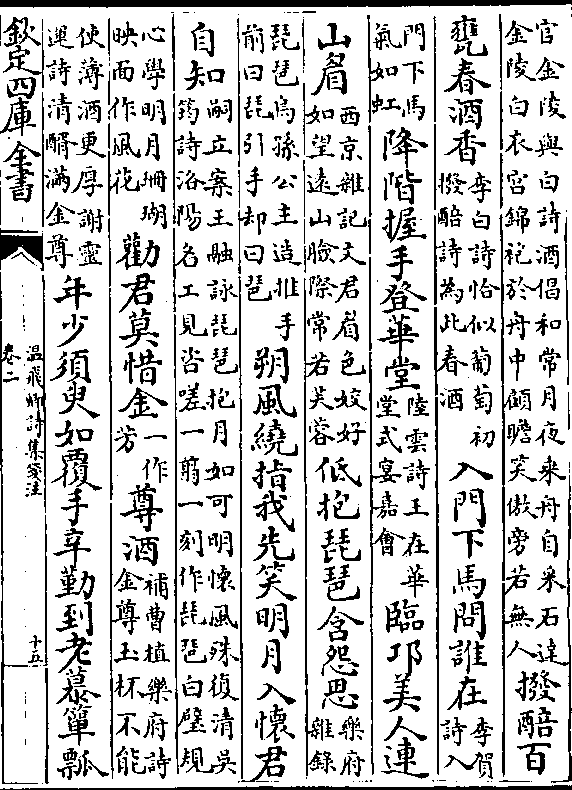 官金陵與白詩酒倡和常月夜乘舟自采石達
金陵白衣宮錦袍於舟中顧瞻笑傲旁若無人
撥醅百
甕春酒香
李白詩恰似葡萄初
撥醅詩為此春酒
入門下馬問誰在
李賀
詩入
門下馬
氣如虹
降階握手登華堂
陸雲詩王在華
堂式宴嘉會
臨邛美人連
山眉
西京雜記文君眉色姣好
如望遠山臉際常若芙蓉
低抱琵琶含怨思
樂府
雜錄
琵琶烏孫公主造推手
前曰琵引手却曰琶
朔風繞指我先笑明月入懷君
自知
嗣立案王融詠琵琶抱月如可明懷風殊復清吳
筠詩洛陽名工見咨嗟一翦一刻作琵琶白璧規
心學明月珊瑚
映面作風花
勸君莫惜金
一作
芳
尊酒
補曹植樂府詩
金尊玉杯不能
使薄酒更厚謝靈
運詩清醑滿金尊
年少須臾如覆手辛勤到老慕簞瓢
欽定四庫全書
溫飛卿詩集箋注
卷二
十五